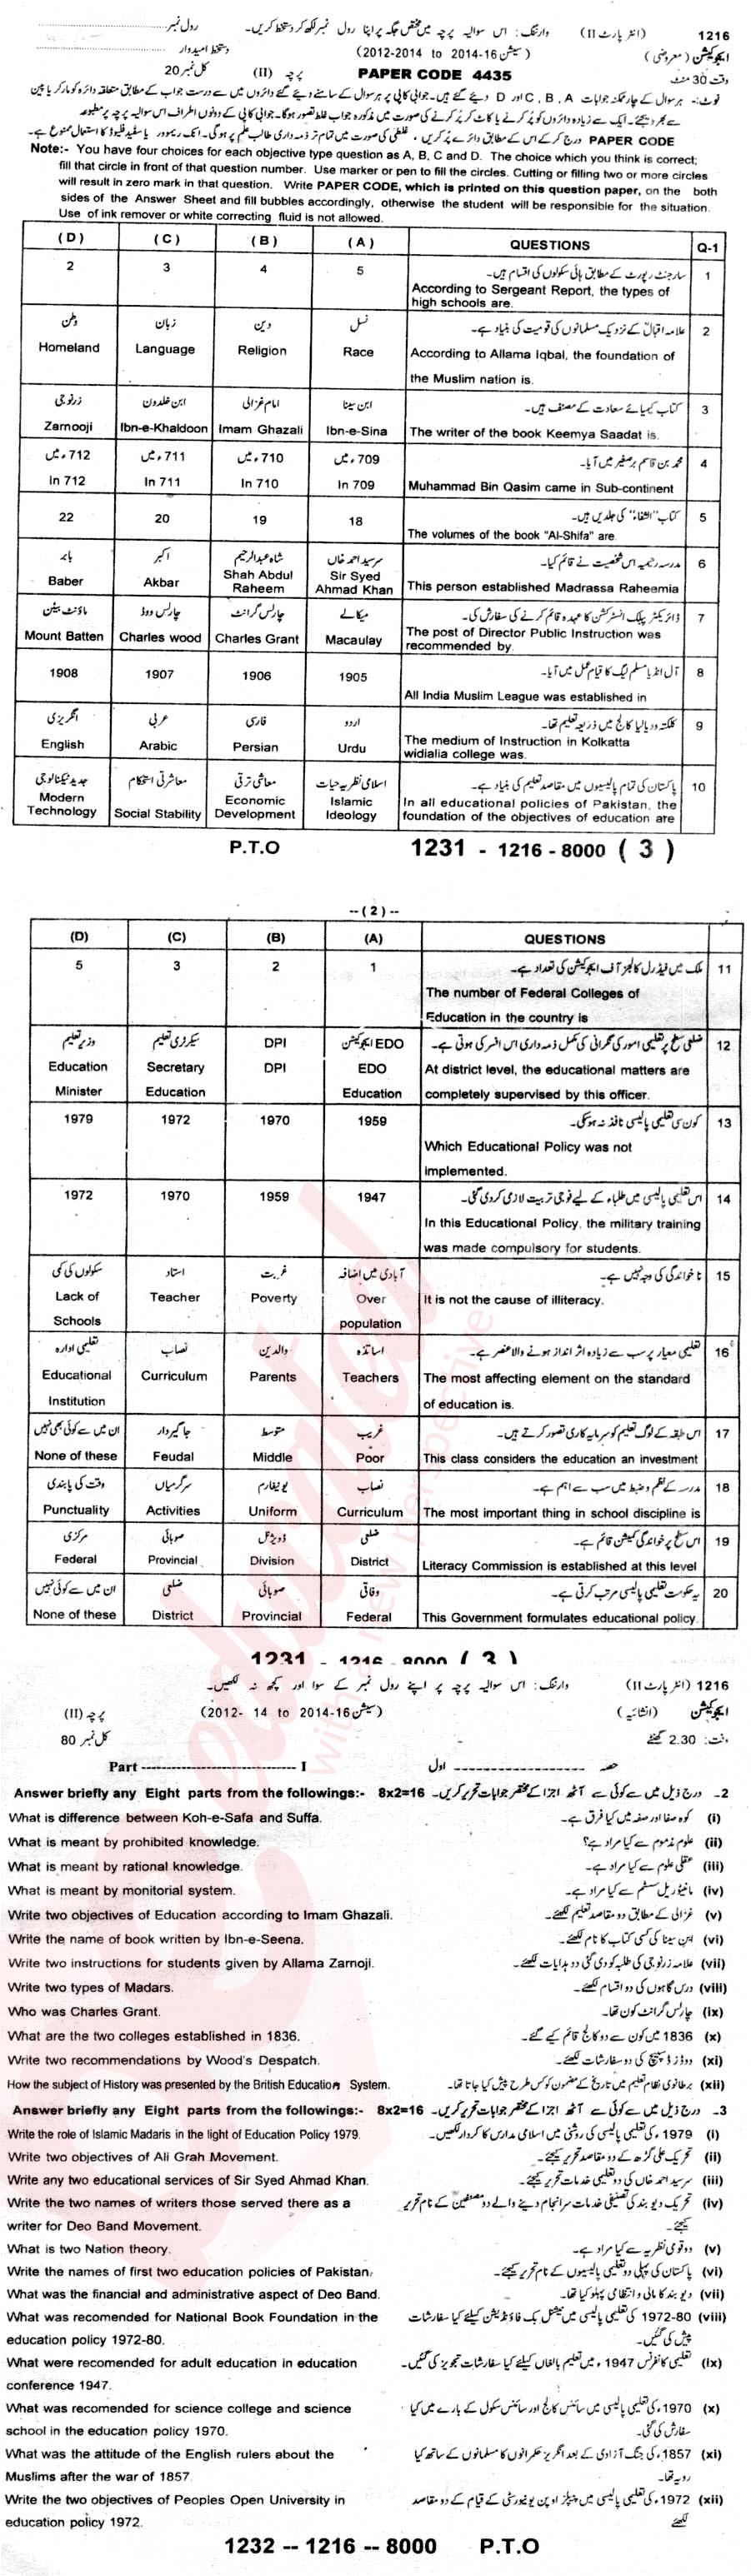 1216 (انٹر پارٹ II) وارننگ: اس سوالیہ پرچہ میں مختص جگہ پر اپنا رول نمبر لکھ کر دستخط کریں۔ رول نمبر
ایجوکیشن (معروضی) (سیشن 2014-16 to 2012-2014) دستخط امیدوار
وقت 30 منٹ PAPER CODE 4435 پرچہ (II) کل نمبر 20
نوٹ:- ہر سوال کے چار ممکنہ جوابات A ، B ، C اور D دیئے گئے ہیں۔ جوابی کاپی پر ہر سوال کے سامنے دیئے گئے دائروں میں سے درست جواب کے مطابق متعلقہ دائرہ کو مارکر یا پین
سے بھر دیجئے۔ ایک سے زیادہ دائروں کو پُر کرنے یا کاٹ کر پُر کرنے کی صورت میں مذکورہ جواب غلط تصور ہوگا۔ جوابی کاپی کے دونوں اطراف اس سوالیہ پرچہ پر مطبوعہ
PAPER CODE درج کر کے اس کے مطابق دائرے پُر کریں، غلطی کی صورت میں تمام تر ذمہ داری طالب علم پر ہوگی۔ انک ریمور یا سفید فلیوڈ کا استعمال ممنوع ہے۔
Note:- You have four choices for each objective type question as A, B, C and D. The choice which you think is correct;
fill that circle in front of that question number. Use marker or pen to fill the circles. Cutting or filling two or more circles
will result in zero mark in that question. Write PAPER CODE, which is printed on this question paper, on the both
sides of the Answer Sheet and fill bubbles accordingly, otherwise the student will be responsible for the situation.
Use of ink remover or white correcting fluid is not allowed.
(D) (C) (B) (A) QUESTIONS Q-1
2 3 4 5 سارجنٹ رپورٹ کے مطابق ہائی سکولوں کی اقسام ہیں۔ 1
According to Sergeant Report, the types of
high schools are.
وطن زبان دین نسل علامہ اقبالؒ کے نزدیک مسلمانوں کی قومیت کی بنیاد ہے۔ 2
Homeland Language Religion Race According to Allama Iqbal, the foundation of
the Muslim nation is.
زرنوجی ابن خلدون امام غزالی ابن سینا کتاب کیمیائے سعادت کے مصنف ہیں۔ 3
Zarnooji Ibn-e-Khaldoon Imam Ghazali Ibn-e-Sina The writer of the book Keemya Saadat is.
712ء میں 711ء میں 710ء میں 709ء میں محمد بن قاسم برصغیر میں آیا۔ 4
In 712 In 711 In 710 In 709 Muhammad Bin Qasim came in Sub-continent
22 20 19 18 کتاب "الشفاء" کی جلدیں ہیں۔ 5
The volumes of the book "Al-Shifa" are
بابر اکبر شاہ عبدالرحیم سرسید احمد خاں مدرسہ رحیمیہ اس شخصیت نے قائم کیا۔ 6
Baber Akbar Shah Abdul Raheem Sir Syed Ahmad Khan This person established Madrassa Raheemia
ماؤنٹ بیٹن چارلس ووڈ چارلس گرانٹ میکالے ڈائریکٹر پبلک انسٹرکشن کا عہدہ قائم کرنے کی سفارش کی۔ 7
Mount Batten Charles wood Charles Grant Macaulay The post of Director Public Instruction was
recommended by.
1908 1907 1906 1905 آل انڈیا مسلم لیگ کا قیام عمل میں آیا۔ 8
All India Muslim League was established in
انگریزی عربی فارسی اردو کلکتہ ودیالیا کالج میں ذریعہ تعلیم تھا۔ 9
English Arabic Persian Urdu The medium of Instruction in Kolkatta
widialia college was.
جدید ٹیکنالوجی معاشرتی استحکام معاشی ترقی اسلامی نظریہ حیات پاکستان کی تمام پالیسیوں میں مقاصد تعلیم کی بنیاد ہے۔ 10
Modern Technology Social Stability Economic Development Islamic Ideology In all educational policies of Pakistan, the
foundation of the objectives of education are
P.T.O 1231 - 1216 - 8000 ( 3 )
--(2)--
(D) (C) (B) (A) QUESTIONS
5 3 2 1 ملک میں فیڈرل کالجز آف ایجوکیشن کی تعداد ہے۔ 11
The number of Federal Colleges of
Education in the country is
وزیر تعلیم سیکرٹری تعلیم DPI EDO ایجوکیشن ضلعی سطح پر تعلیمی امور کی نگرانی کی مکمل ذمہ داری اس افسر کی ہوتی ہے۔ 12
Education Minister Secretary Education DPI EDO Education At district level, the educational matters are
completely supervised by this officer.
1979 1972 1970 1959 کون سی تعلیمی پالیسی نافذ نہ ہو سکی۔ 13
Which Educational Policy was not
implemented.
1972 1970 1959 1947 اس تعلیمی پالیسی میں طلباء کے لیے فوجی تربیت لازمی کر دی گئی۔ 14
In this Educational Policy, the military training
was made compulsory for students.
سکولوں کی کمی استاد غربت آبادی میں اضافہ ناخواندگی کی وجہ نہیں ہے۔ 15
Lack of Schools Teacher Poverty Over population It is not the cause of illiteracy.
تعلیمی ادارہ نصاب والدین اساتذہ تعلیمی معیار پر سب سے زیادہ اثر انداز ہونے والا عنصر ہے۔ 16
Educational Institution Curriculum Parents Teachers The most affecting element on the standard
of education is.
ان میں سے کوئی بھی نہیں جاگیردار متوسط غریب اس طبقہ کے لوگ تعلیم کو سرمایہ کاری تصور کرتے ہیں۔ 17
None of these Feudal Middle Poor This class considers the education an investment
وقت کی پابندی سرگرمیاں یونیفارم نصاب مدرسہ کے نظم و ضبط میں سب سے اہم ہے۔ 18
Punctuality Activities Uniform Curriculum The most important thing in school discipline is
مرکزی صوبائی ڈویژنل ضلعی اس سطح پر خواندگی کمیشن قائم ہے۔ 19
Federal Provincial Division District Literacy Commission is established at this level
ان میں سے کوئی نہیں ضلعی صوبائی وفاقی یہ حکومت تعلیمی پالیسی مرتب کرتی ہے۔ 20
None of these District Provincial Federal This Government formulates educational policy.
1231 - 1216 - 8000 ( 3 )
1216 (انٹر پارٹ II) وارننگ: اس سوالیہ پرچہ پر اپنے رول نمبر کے سوا اور کچھ نہ لکھیں۔
ایجوکیشن (انشائیہ) (سیشن 2014-16 to 2012- 14) پرچہ (II)
وقت: 2.30 گھنٹے کل نمبر 80
Part ------ I حصہ ------ اول
Answer briefly any Eight parts from the followings:- 8x2=16 2- درج ذیل میں سے کوئی سے آٹھ اجزا کے مختصر جوابات تحریر کریں۔
What is difference between Koh-e-Safa and Suffa. (i) کوہ صفا اور صفہ میں کیا فرق ہے۔
What is meant by prohibited knowledge. (ii) علوم مذموم سے کیا مراد ہے؟
What is meant by rational knowledge. (iii) عقلی علوم سے کیا مراد ہے۔
What is meant by monitorial system. (iv) مانیٹوریل سسٹم سے کیا مراد ہے۔
Write two objectives of Education according to Imam Ghazali. (v) غزالی کے مطابق دو مقاصد تعلیم لکھئے۔
Write the name of book written by Ibn-e-Seena. (vi) ابن سینا کی کسی کتاب کا نام لکھئے۔
Write two instructions for students given by Allama Zarnoji. (vii) علامہ زرنوجی کی طلبہ کو دی گئی دو ہدایات لکھئے۔
Write two types of Madars. (viii) درس گاہوں کی دو اقسام لکھئے۔
Who was Charles Grant. (ix) چارلس گرانٹ کون تھا۔
What are the two colleges established in 1836. (x) 1836 میں کون سے دو کالج قائم کیے گئے۔
Write two recommendations by Wood's Despatch. (xi) ووڈز ڈسپیچ کی دو سفارشات لکھئے۔
How the subject of History was presented by the British Education System. (xii) برطانوی نظام تعلیم میں تاریخ کے مضمون کو کس طرح پیش کیا جاتا تھا۔
Answer briefly any Eight parts from the followings:- 8x2=16 3- درج ذیل میں سے کوئی سے آٹھ اجزا کے مختصر جوابات تحریر کریں۔
Write the role of Islamic Madaris in the light of Education Policy 1979. (i) 1979ء کی تعلیمی پالیسی کی روشنی میں اسلامی مدارس کا کردار لکھیں۔
Write two objectives of Ali Grah Movement. (ii) تحریک علی گڑھ کے دو مقاصد تحریر کیجئے۔
Write any two educational services of Sir Syed Ahmad Khan. (iii) سرسید احمد خاں کی دو تعلیمی خدمات تحریر کیجئے۔
Write the two names of writers those served there as a (iv) تحریک دیوبند کی تصنیفی خدمات سرانجام دینے والے دو مصنفین کے نام تحریر
writer for Deo Band Movement. کیجئے۔
What is two Nation theory. (v) دو قومی نظریہ سے کیا مراد ہے۔
Write the names of first two education policies of Pakistan. (vi) پاکستان کی پہلی دو تعلیمی پالیسیوں کے نام تحریر کیجئے۔
What was the financial and administrative aspect of Deo Band. (vii) دیوبند کا مالی و انتظامی پہلو کیا تھا۔
What was recomended for National Book Foundation in the (viii) 1972-80 کی تعلیمی پالیسی میں نیشنل بک فاؤنڈیشن کیلئے کیا سفارشات
education policy 1972-80. پیش کی گئیں۔
What were recomended for adult education in education (ix) تعلیمی کانفرنس 1947ء میں تعلیم بالغاں کیلئے کیا سفارشات تجویز کی گئیں۔
conference 1947.
What was recomended for science college and science (x) 1970ء کی تعلیمی پالیسی میں سائنس کالج اور سائنس سکول کے بارے میں کیا
school in the education policy 1970. سفارش کی گئی۔
What was the attitude of the English rulers about the (xi) 1857ء کی جنگ آزادی کے بعد انگریز حکمرانوں کا مسلمانوں کے ساتھ کیا
Muslims after the war of 1857. رویہ تھا۔
Write the two objectives of Peoples Open University in (xii) 1972ء کی تعلیمی پالیسی میں پیپلز اوپن یونیورسٹی کے قیام کے دو مقاصد
education policy 1972. لکھئے
1232 -- 1216 -- 8000 P.T.O